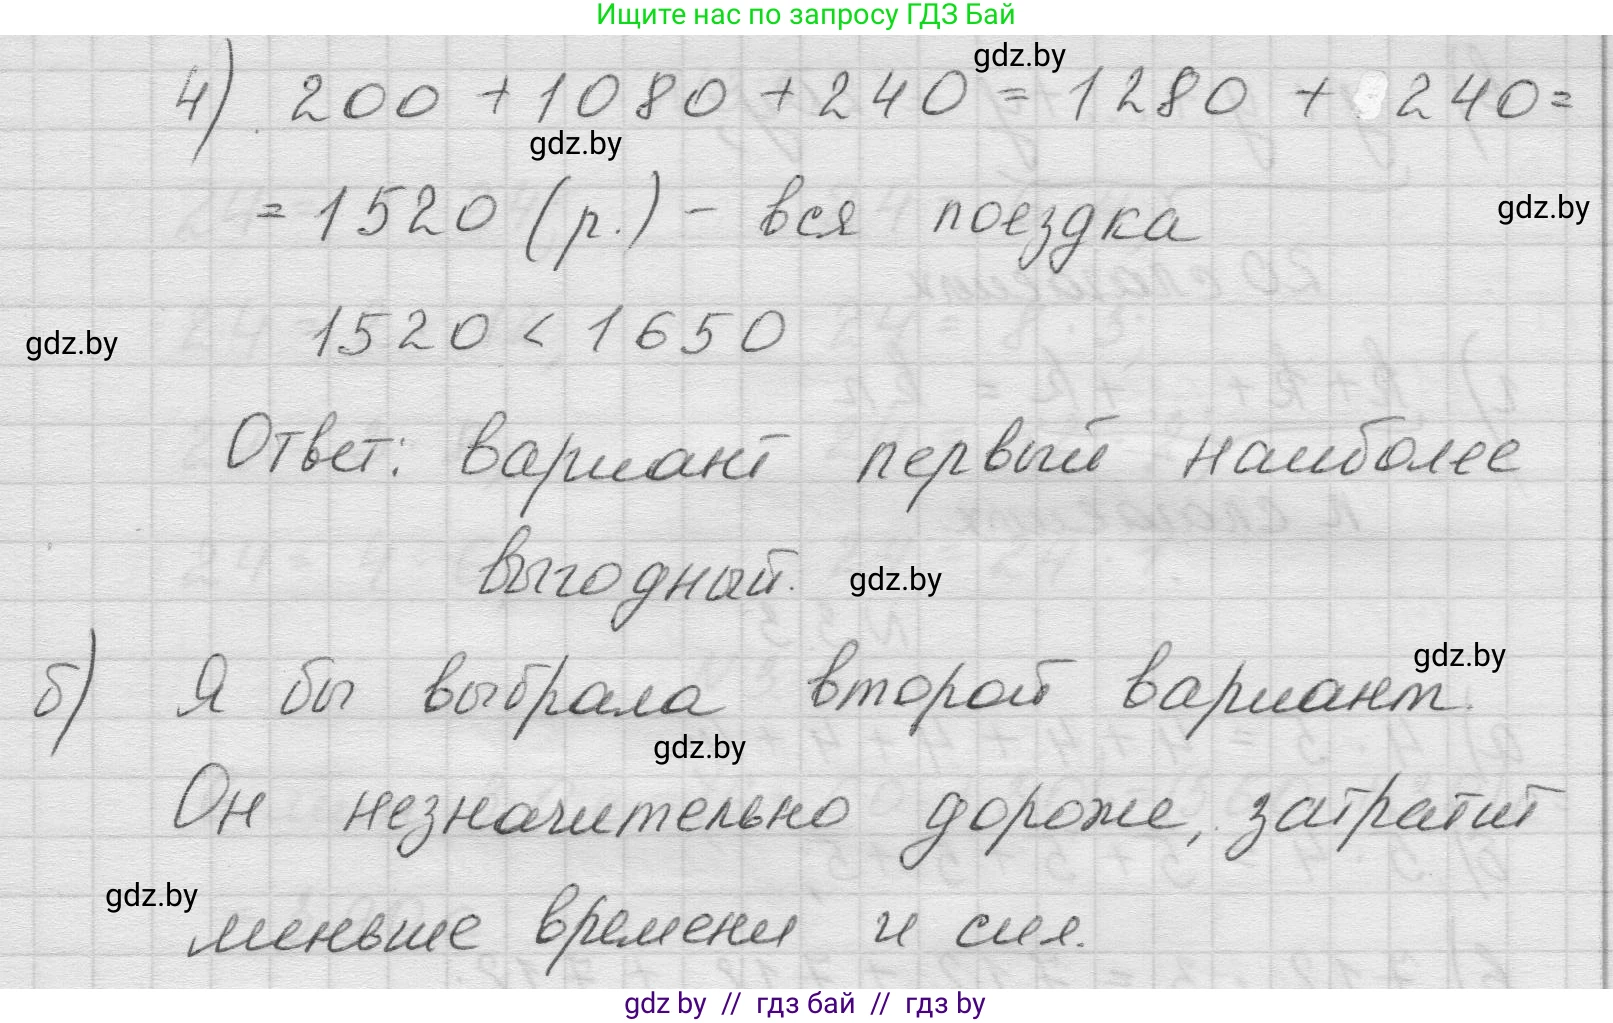 Ищите нас по запросу ГДЗ Бай
gdz.by
4) 200 + 1080 + 240 = 1280 + 240 =
gdz.by
= 1520 (р.) - вся поездка
gdz.by
1520 < 1650
gdz.by
Ответ: вариант первый наиболее
выгодный.
gdz.by
б) Я бы выбрала второй вариант.
gdz.by
gdz.by
Он незначительно дороже, затратит
gdz.by
меньше времени и сил.
gdz by // гдз бай // гдз by